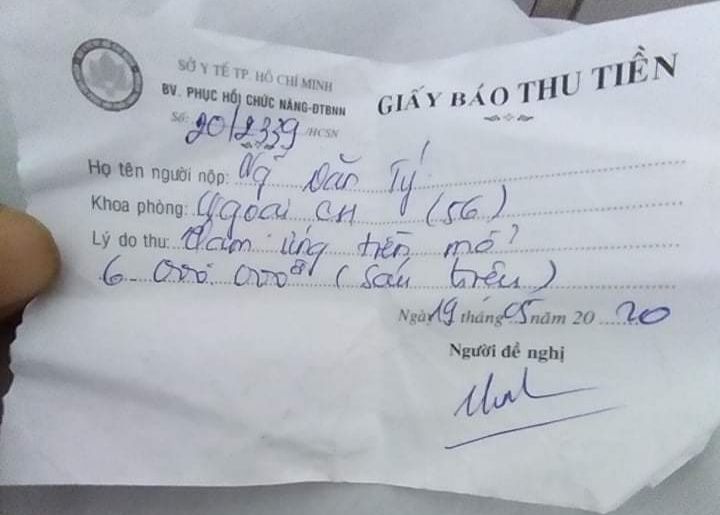 SỞ Y TẾ TP. HỒ CHÍ MINH
BV. PHỤC HỒI CHỨC NĂNG-ĐTBNN
Số: 20/2339/HCSN
GIẤY BÁO THU TIỀN
Họ tên người nộp: Ng Văn Tý
Khoa phòng: Ngoại CH (56)
Lý do thu: Tạm ứng tiền mổ
6.000.000đ (Sáu triệu)
Ngày 19 tháng 05 năm 20 20
Người đề nghị